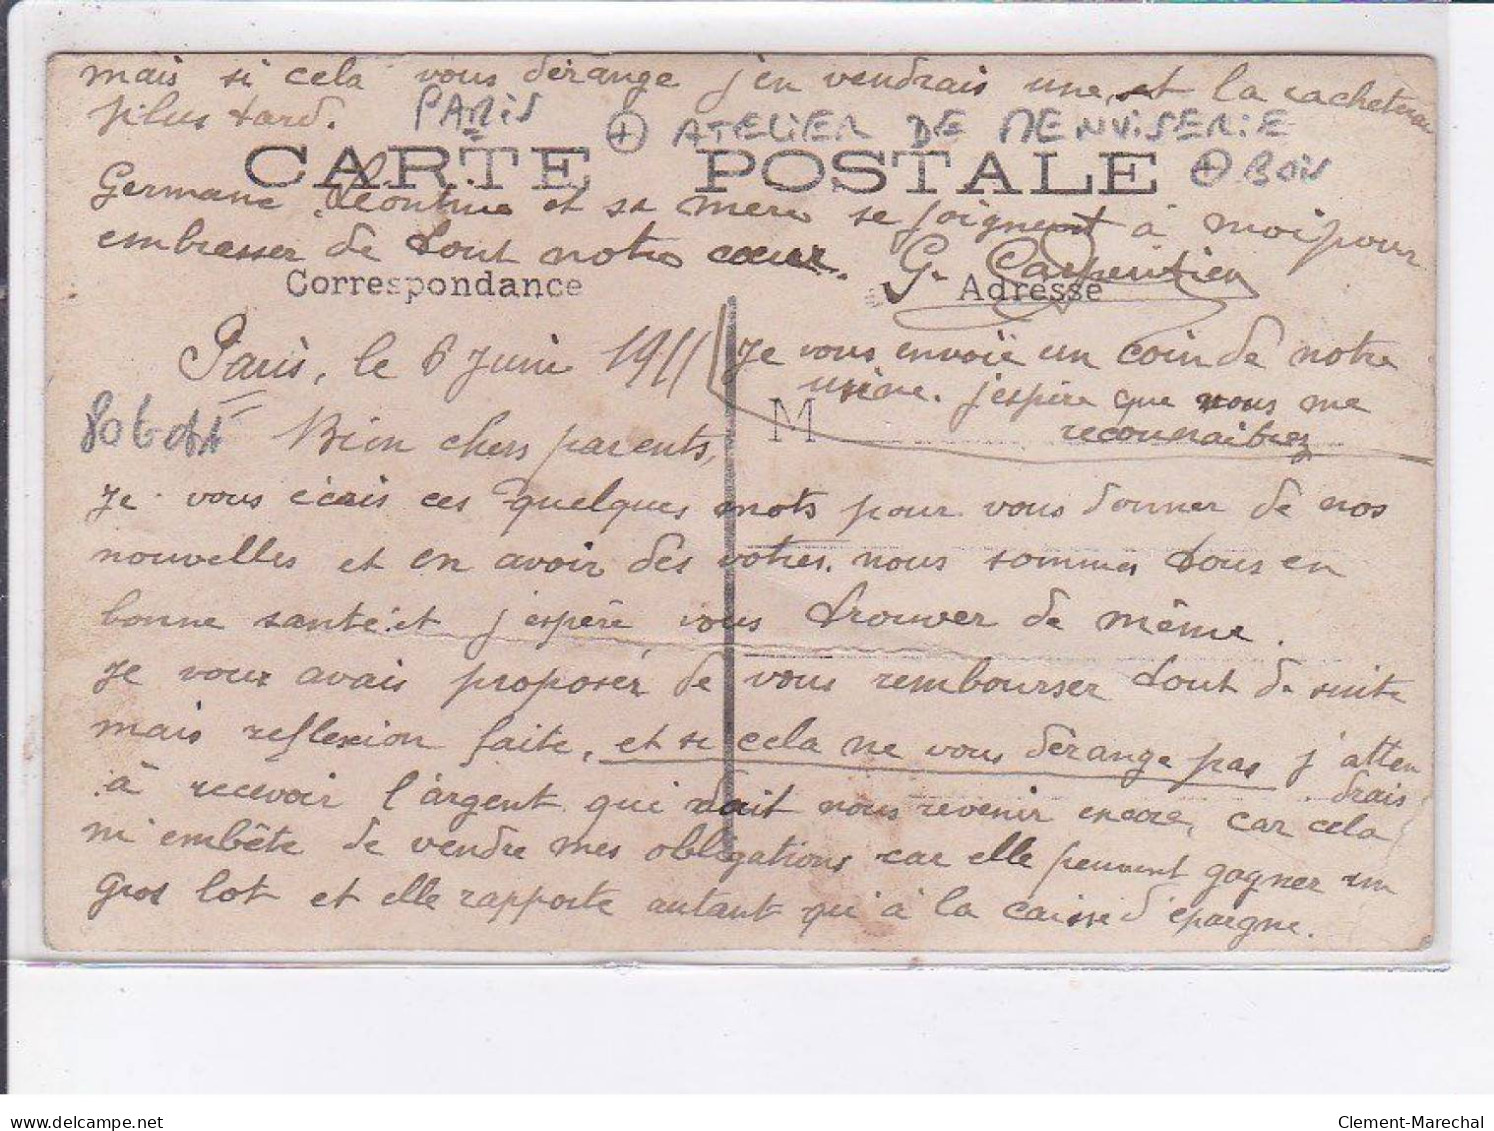 mais si cela vous dérange j'en vendrais une et la racheterai
plus tard. PARIS + ATELIER DE MENUISERIE
CARTE POSTALE + BOIS
Germane Léontine et sa mère se joignent à moi pour
embrasser de tout notre coeur. G. Carpentier
Correspondance Adresse
Paris, le 6 Juin 1911
Je vous envoie un coin de notre
usine. j'espère que vous me
reconnaitrez
M
Bien chers parents,
Je vous écris ces quelques mots pour vous donner de nos
nouvelles et en avoir des votres. nous sommes tous en
bonne santé et j'espère vous trouver de même.
Je vous avais proposér de vous rembourser tout de suite
mais reflexion faite, et si cela ne vous dérange pas j'atten
drais
à recevoir l'argent qui doit nous revenir encore, car cela
m'embête de vendre mes obligations car elle peuvent gagner un
gros lot et elle rapporte autant qu'à la caisse d'epargne.
delcampe.net
Clement-Marechal